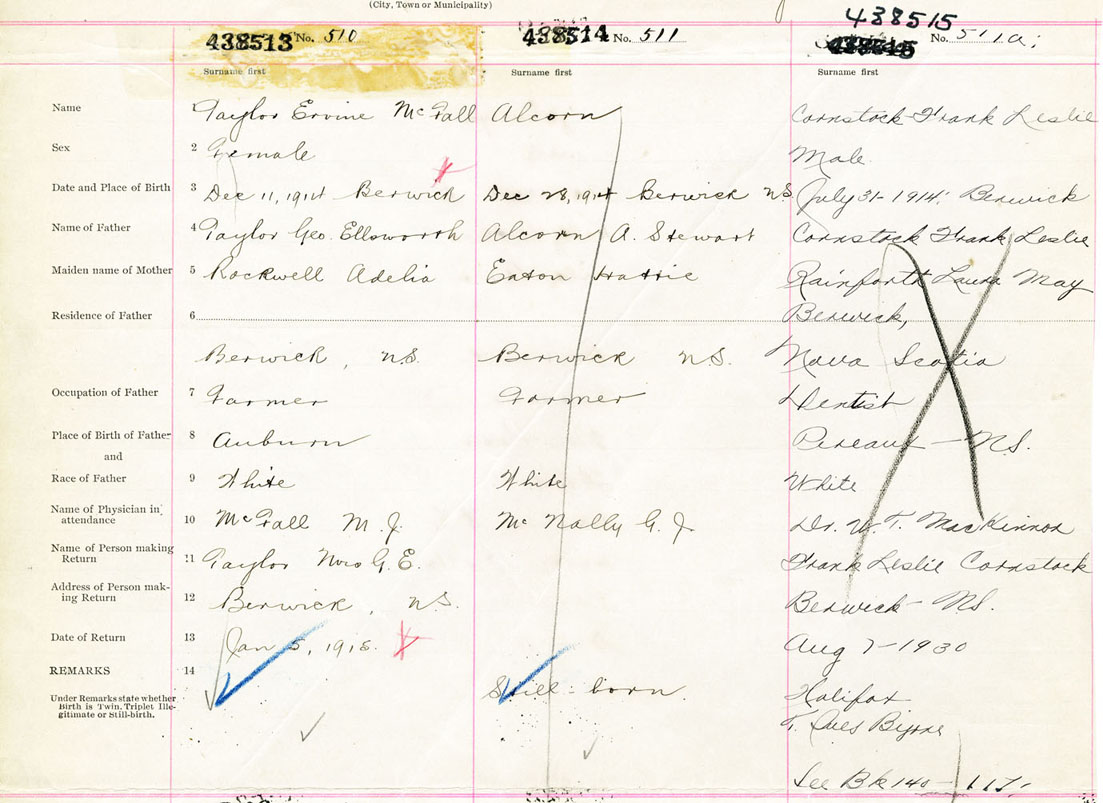 (City, Town or Municipality)
438513 No. 510 438514 No. 511 438515 No. 511a.
Surname first Surname first Surname first
Name 1 Taylor Ervine McFall Alcorn Comstock Frank Leslie
Sex 2 Female Male
Date and Place of Birth 3 Dec 11, 1914 Berwick Dec 28, 1914 Berwick NS July 31-1914; Berwick
Name of Father 4 Taylor Geo. Ellsworth Alcorn A. Stewart Comstock Frank Leslie
Maiden name of Mother 5 Rockwell Adelia Eaton Hattie Rainforth Laura May
Residence of Father 6 Berwick,
Berwick, N.S. Berwick N.S. Nova Scotia
Occupation of Father 7 Farmer Farmer Dentist
Place of Birth of Father 8 Auburn Pereaux - N.S.
and
Race of Father 9 White White White
Name of Physician in
attendance 10 McFall M. J. McNally G. J. Dr. W. T. MacKinnon
Name of Person making
Return 11 Taylor Mrs G. E. Frank Leslie Comstock
Address of Person mak-
ing Return 12 Berwick, N.S. Berwick - N.S.
Date of Return 13 Jan 5, 1915. Aug 7-1930
REMARKS 14 Still-born Halifax
Under Remarks state whether
Birth is Twin, Triplet Ille-
gitimate or Still-birth.
Byrne
See Bk 140 -